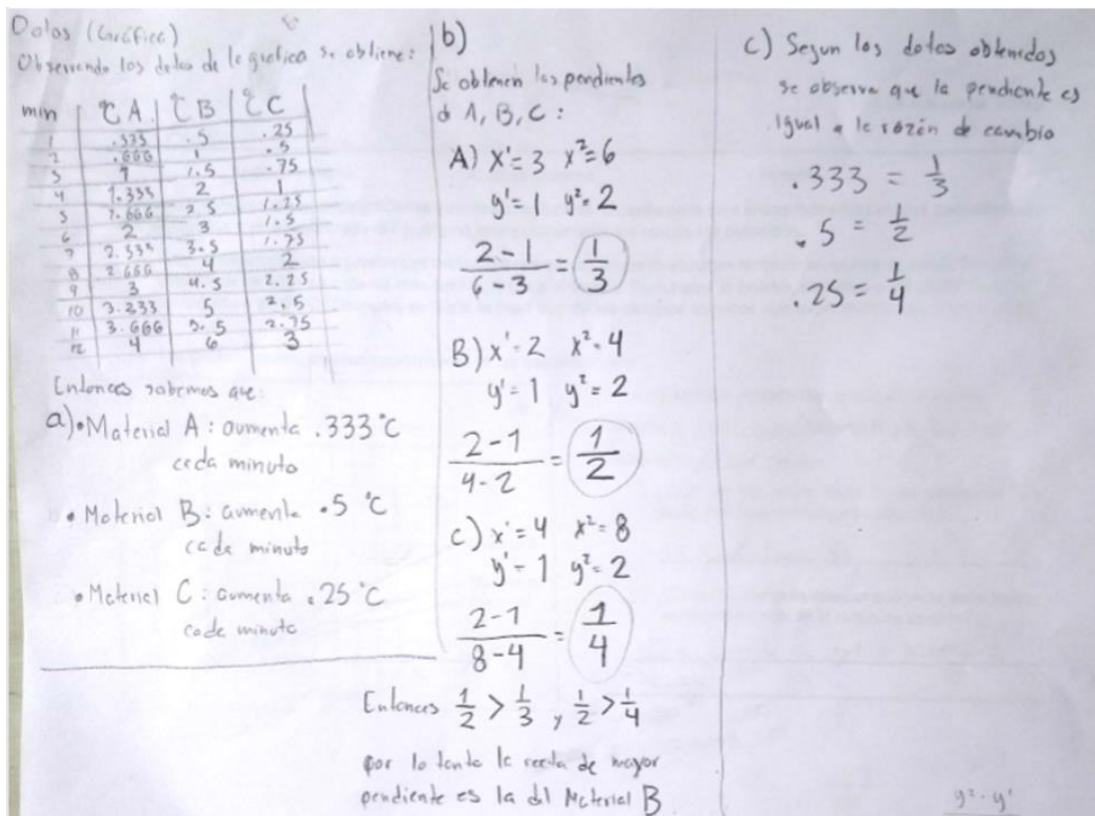 Datos (Gráfica)
Observando los datos de la grafica se obtiene:
min °C A °C B °C C
1 .333 .5 .25
2 .666 1 .5
3 1 1.5 .75
4 1.333 2 1
5 1.666 2.5 1.25
6 2 3 1.5
7 2.333 3.5 1.75
8 2.666 4 2
9 3 4.5 2.25
10 3.333 5 2.5
11 3.666 5.5 2.75
12 4 6 3
Entonces sabemos que:
a) • Material A: aumenta .333 °C
cada minuto
• Material B: aumenta .5 °C
cada minuto
• Material C: aumenta .25 °C
cada minuto
b)
Se obtienen las pendientes
d A, B, C:
A) x¹=3 x²=6
y¹=1 y²=2
2-1/6-3 = 1/3
B) x¹=2 x²=4
y¹=1 y²=2
2-1/4-2 = 1/2
C) x¹=4 x²=8
y¹=1 y²=2
2-1/8-4 = 1/4
Entonces 1/2 > 1/3 y 1/2 > 1/4
por lo tanto la recta de mayor
pendiente es la del Material B
c) Segun los datos obtenidos
se observa que la pendiente es
igual a la razón de cambio
.333 = 1/3
.5 = 1/2
.25 = 1/4
y²-y¹